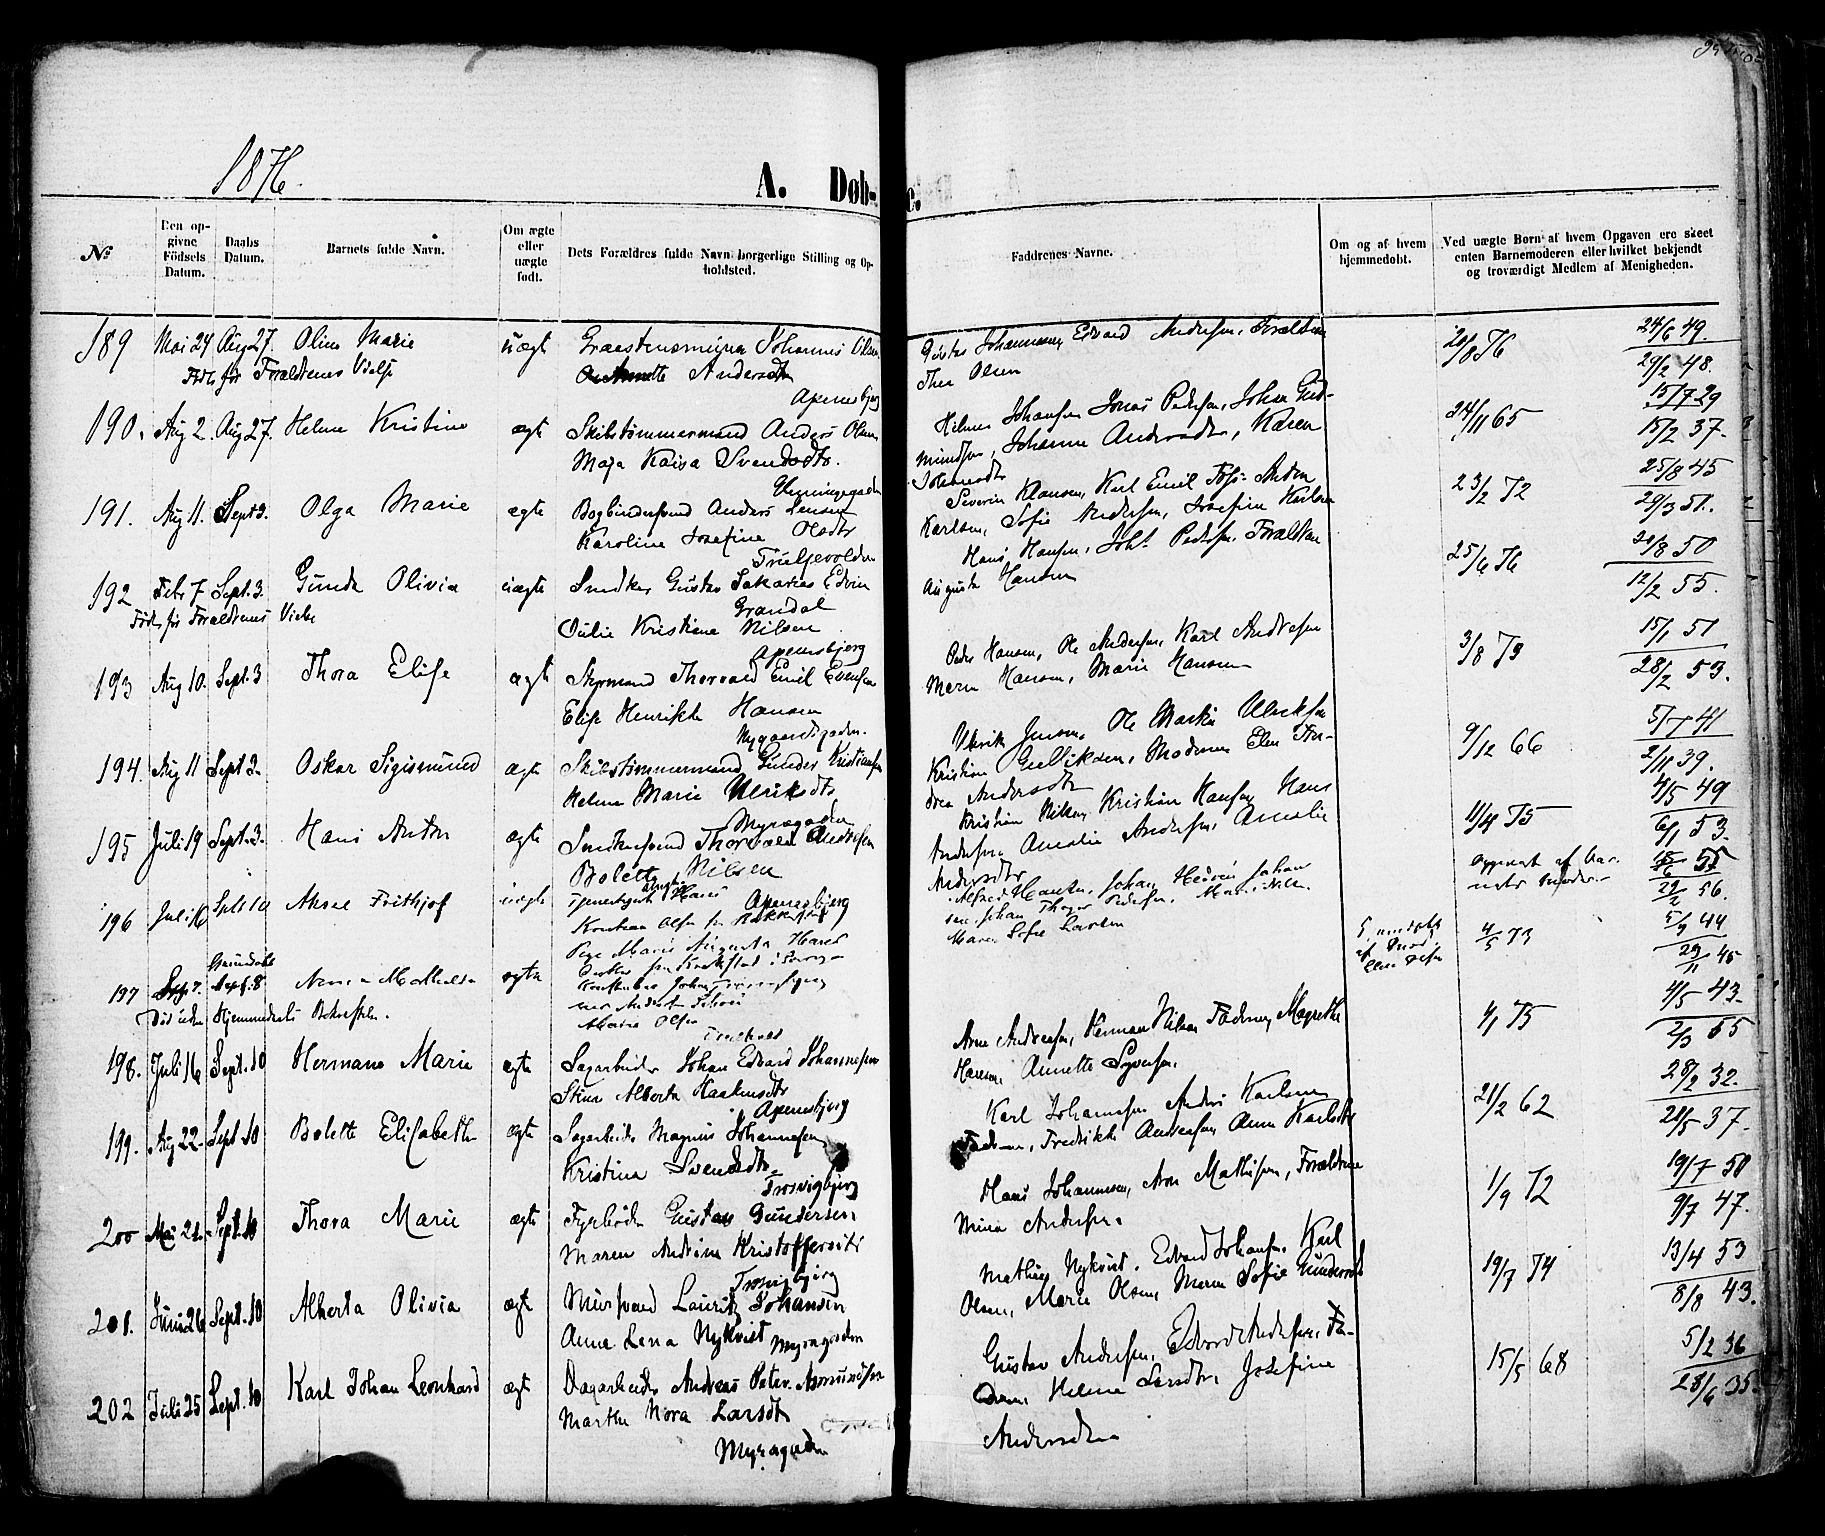 1876.
A. Døb-
e.
No
Den op-
givne
Födsels
Datum.
Daabs
Datum.
Barnets fulde Navn.
Om ægte
eller
uægte
født.
Dets Forældres fulde Navn borgerlige Stilling og Op-
holdsted.
Faddrenes Navne.
Om og af hvem
hjemmedøbt.
Ved uægte Børn af hvem Opgaven ere skeet
enten Barnemoderen eller hvilket bekjendt
og troværdigt Medlem af Menigheden.
189 Mai 24 Aug 27. Oline Marie uægt Johannes Olsen
Födt før Forældrenes Vielse
Andersdtr
Apenesbjerg
Johannesen, Edvard Andersen, Forældrene
Thea Olsen
20/8 76
24/6 49.
29/2 48.
190. Aug 2. Aug 27. Helene Kristine ægte Skibstømmermand Anders Olsen
Maja Kaisa Svendsdtr.
Johansen Jonas Pedersen, Johan Gud-
mundsen, Johanne Andersdtr, Karen
Johansdtr
24/11 65
15/7 29
15/2 37.
191. Aug 11. Sept 3. Olga Marie ægte Bogbindersvend Anders Jensen
Karoline Josefine Olsdtr
Trulsevolden
Severin Klausen, Karl Emil Anton
Karlsen, Sofie Andersen, Josefine Karlsen
23/2 72
25/8 45
29/3 51.
192 Febr 7 Sept. 3. Gunda Olivia uægte Snedker Gustav Sakarias Edvin
Födt før Forældrenes Vielse
Grandal
Julie Kristiane Nilsen
Apenesbjerg
Hans Hansen, Joh. Pedersen, Forældrene
Auguste Hansen
25/6 76
20/8 50
12/2 55.
193 Aug 10. Sept. 3 Thora Elise ægt Styrmand Thorvald Emil Evensen
Elise Henrikke Hansen
Nygaardsgaden.
Peder Hansen, Ole Andersen, Karl Andresen
Maren Hansen, Marie Hansen
3/8 73
15/1 51
28/2 53.
194. Aug 11 Sept 3. Oskar Sigismund ægte Skibstømmermand Gunder Kristiansen
Helene Marie Ulriksdtr
Myragaden
Ulrik Jensen, Ole Martin Ulriksen
Kristian Gulliksen, Moderen Elen An-
drea Andersdtr
9/12 66
5/7 41
2/11 39.
195 Juli 19 Sept. 3. Hans Anton ægte Snedkersvend Thorvald Andresen
Bolette Nilsen
Apenesbjerg
Kristian Nilsen, Kristian Hansen, Hans
Andersen, Amalie Andersen, Amalie
Andersdtr
11/4 75
4/5 49
6/1 53.
196 Juli 16 Sept 10 Aksel Frithjof uægte Hans
Kristian Olsen
Pige Marie Augusta
Alfred Hansen, Johan
Johan Pedersen,
Maren Sofie Larsen
Opgivet af Bar-
nets Moder.
55
29/2 56.
197 Sept. 8 ægte
Död uden Hjemmedaabs Bekræftelse.
Marie Olsen
4/5 73
5/9 44
29/11 45
198. Juli 16 Sept. 10 Hermane Marie ægte Sagarbeider Johan Edvard Johannesen
Alberta Haakensdtr
Apenesbjerg
Arne Andreasen, Herman Nilsen, Faderen, Magrethe
Hansen, Annette Syversen.
4/1 75
4/5 43.
2/3 55
199. Aug 22. Sept 10 Bolette Elisabeth ægte Sagarbeider Magnus Johannesen
Kristina Svendsdtr
Trosvigbjerg
Karl Johannesen Anders Karlsen
Faderen, Fredrikke Andersen, Anna Karlsdtr
21/2 62
28/2 32.
21/5 37.
200 Mai 21. Sept. 10 Thora Marie ægte Fyrbøder Gustav Gundersen
Maren Andrine Kristoffersdtr
Trosvigbjerg
Hans Johannesen, Arne Mathisen, Forældrene
Mina Andersen.
1/9 72
19/7 50
9/7 47.
201. Juni 26 Sept. 10 Alberta Olivia ægte Mursvend Lauritz Johansen
Anne Lena Nykvist Myragaden
Mathias Nykvist. Edvard Johansen, Karl
Olsen, Marie Olsen, Maren Sofie Gundersdtr
19/7 74
13/4 53
8/8 43.
202 Juli 25 Sept. 10 Karl Johan Leonhard ægt Dagarbeider Andreas Peter Asmundsen
Marthe Nora Larsdtr
Myragaden
Gustav Andersen, Edvard Andersen, Fa-
deren, Helene Larsdtr, Josefine
Andersdtr
15/5 68
5/2 36
28/6 35.